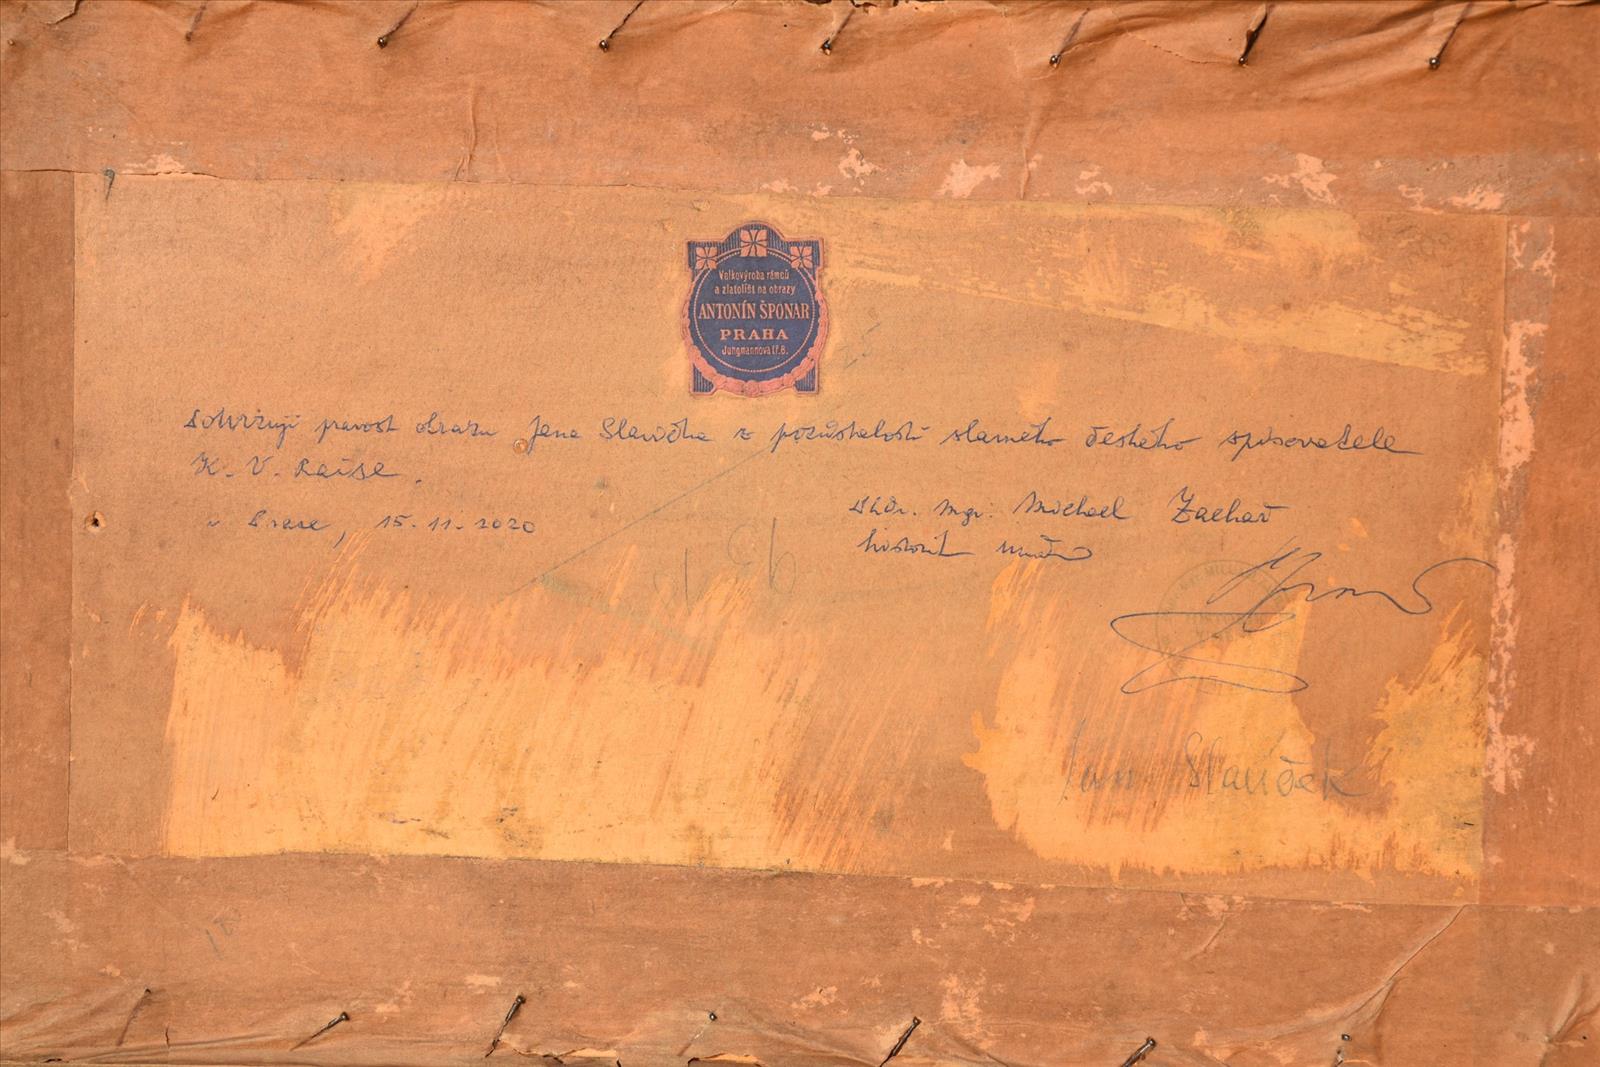 Velkovýroba rámců
a zlatolišt na obrazy
ANTONÍN ŠPONAR
PRAHA
Jungmannova tř. 8.
25
Potvrzuji pravost obrazu Jana Slavíčka z pozůstalosti slavného českého spisovatele
K. V. Raise.
v Praze, 15. 11. 2020
PhDr. Mgr. Michael Zachař
historik umění
Jan Slavíček